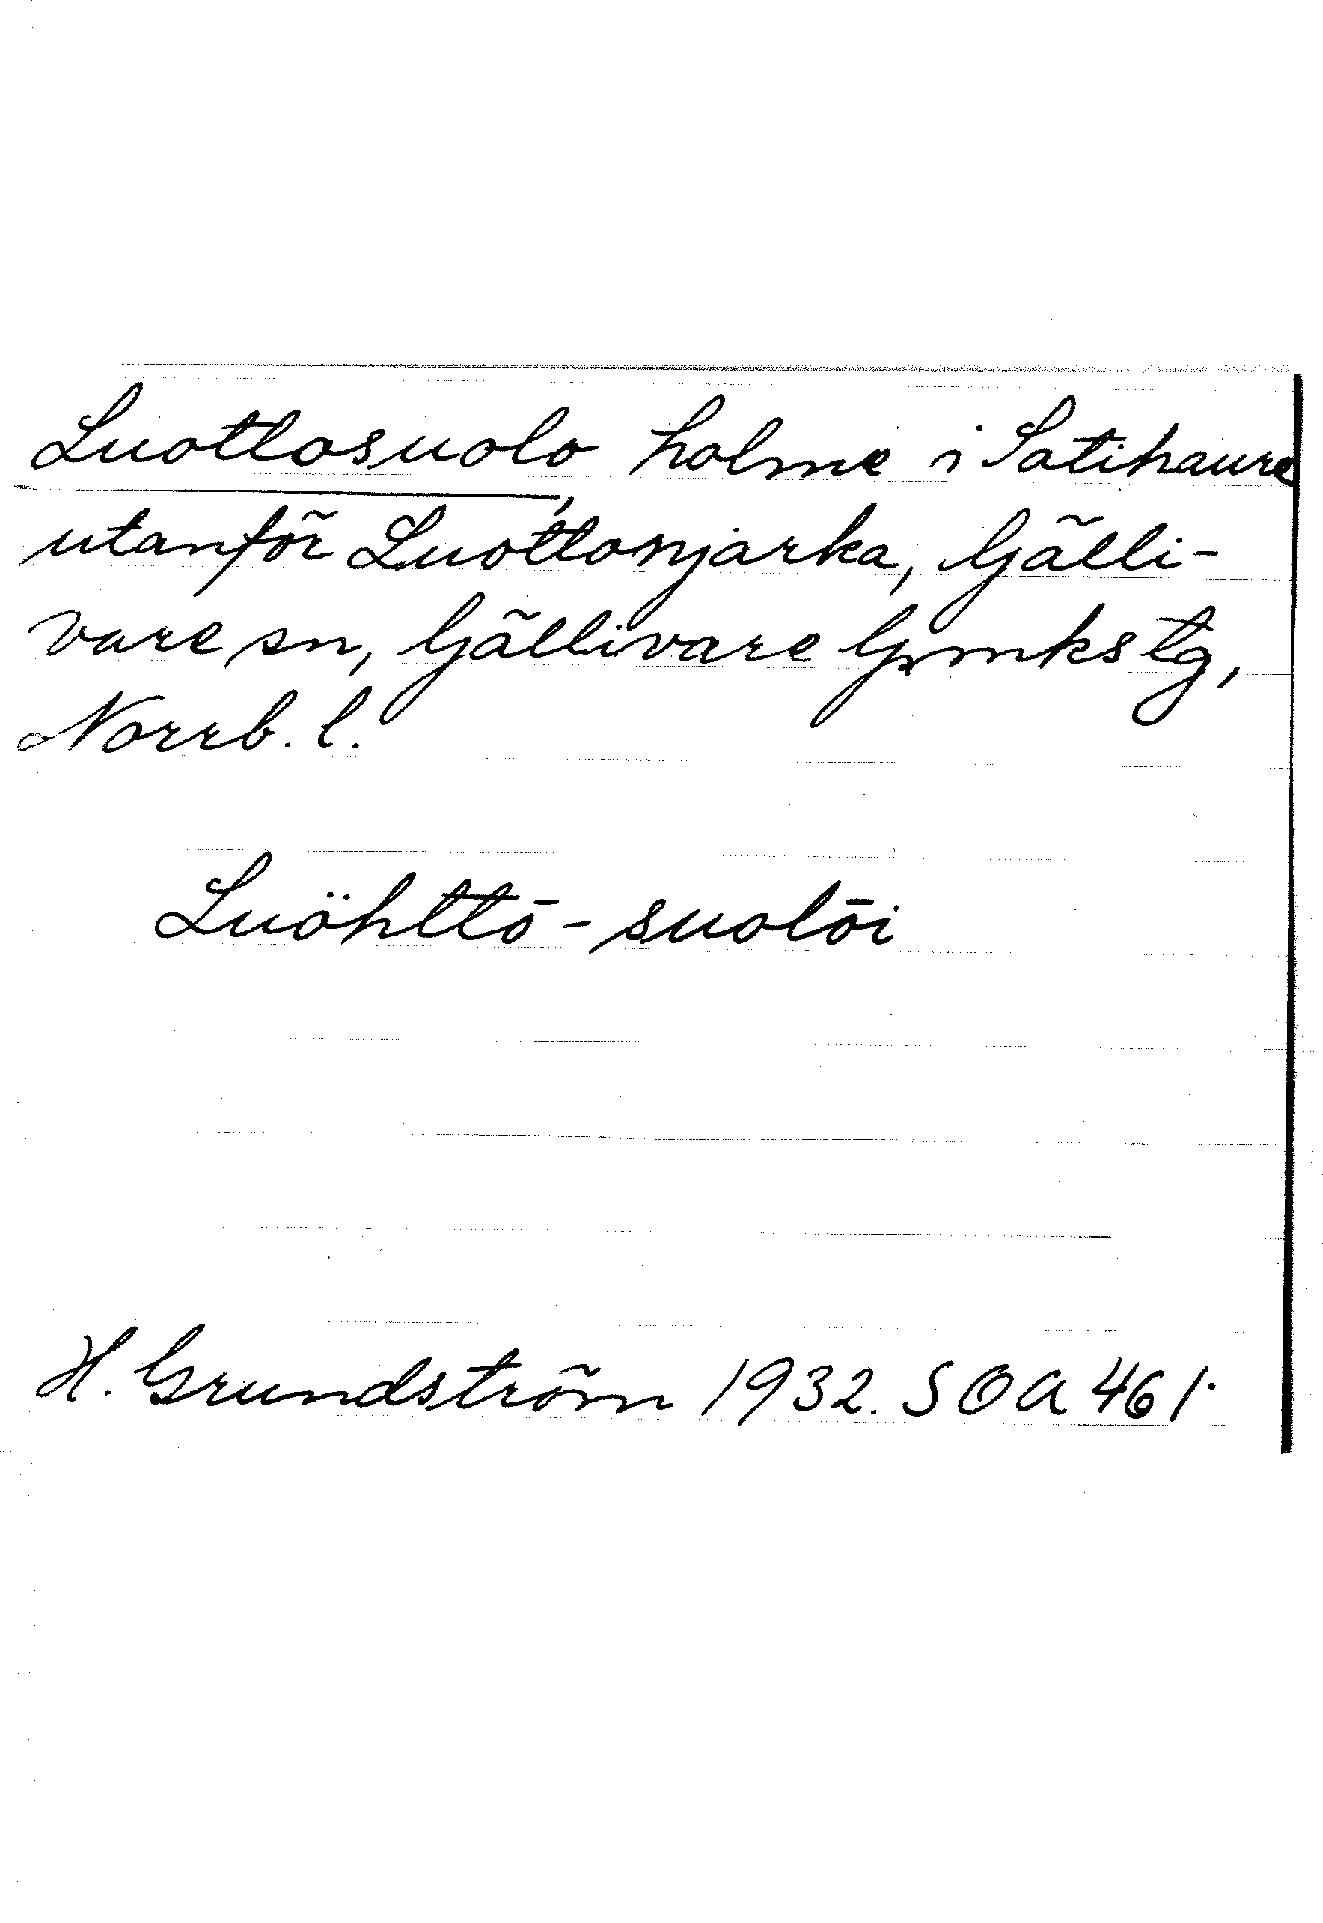 Luottosuolo, holme i Satihaure
utanför Luottonjarka, Gälli-
vare sn, Gällivare lpmks tg,
Norrb. l.
Luöhttō-suolōi
H. Grundström 1932. SOA 461.